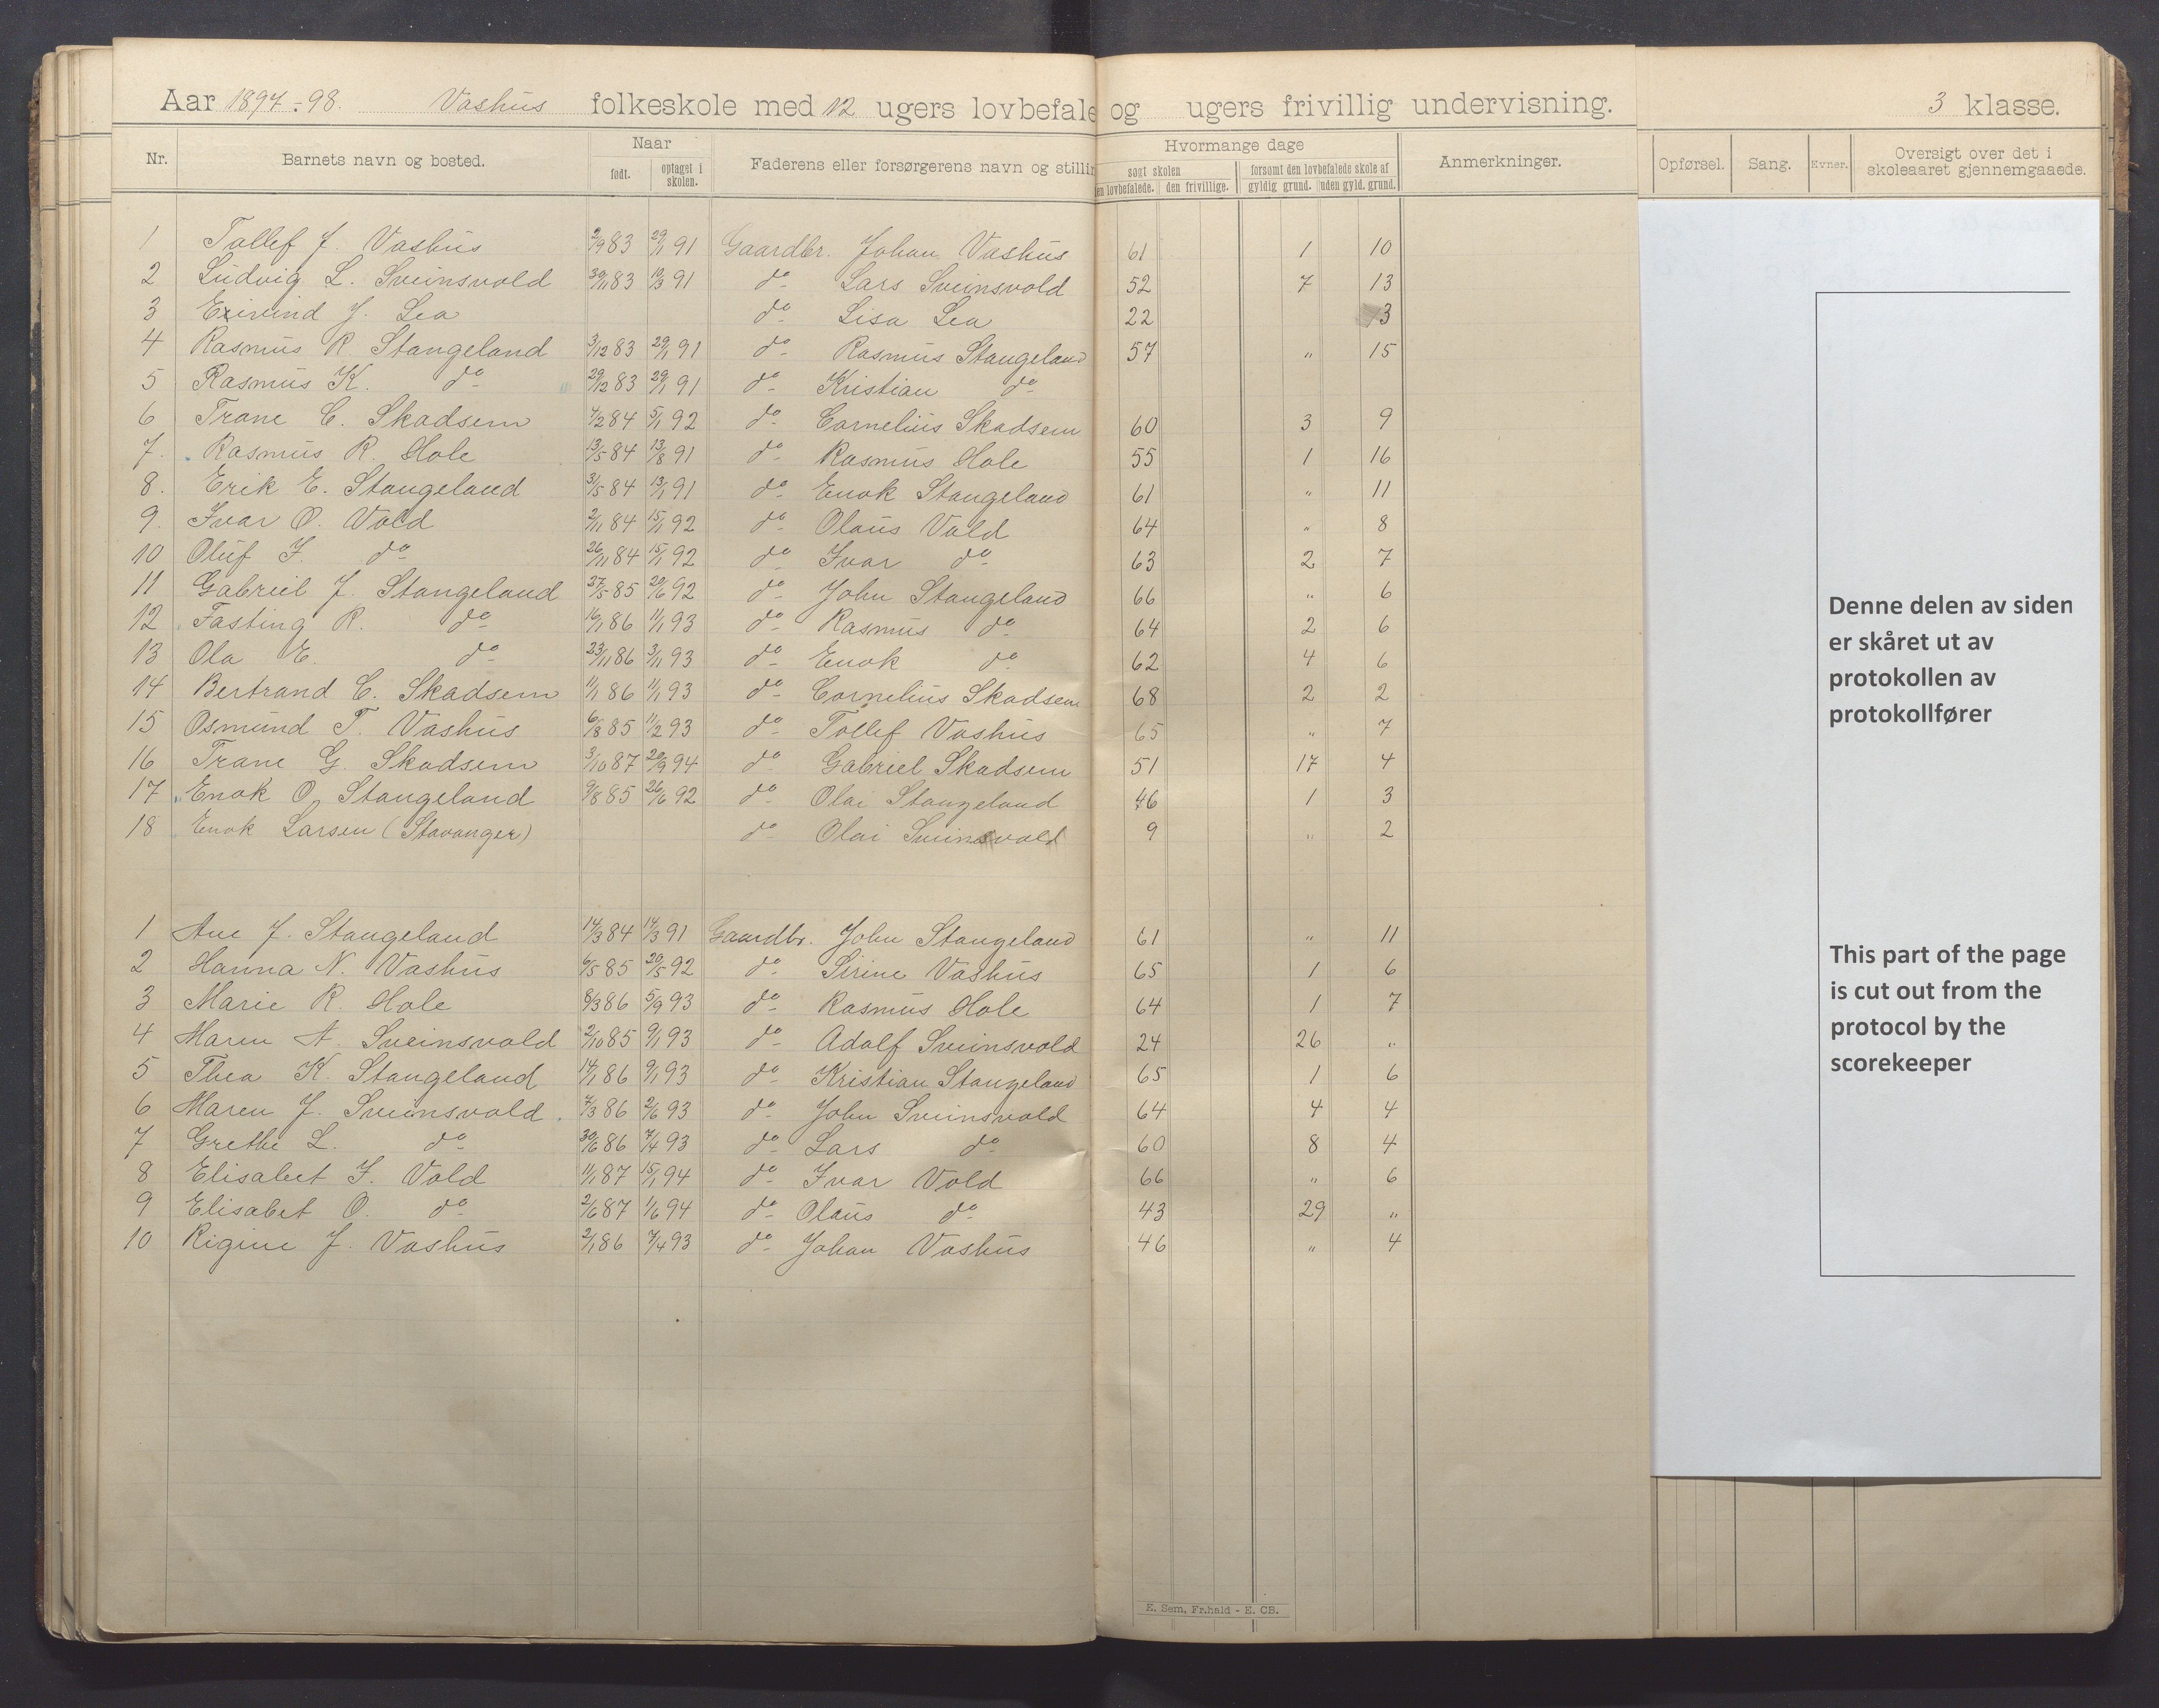 Aar 1897-98. Vashus folkeskole med 12 ugers lovbefale og ugers frivillig undervisning. 3 klasse.
Nr. Barnets navn og bosted. Naar født. optaget i skolen. Faderens eller forsørgerens navn og stillin Hvormange dage søgt skolen en lovbefalede. den frivillige. forsømt den lovbefalede skole af gyldig grund. uden gyld. grund. Anmerkninger. Opførsel. Sang. Evner. Oversigt over det i skoleaaret gjennemgaaede.
1 Tollef J. Vashus 2/9 83 29/1 91 Gaardbr. Johan Vashus 61 1 10
2 Ludvig L. Sveinsvold 30/11 83 19/3 91 do Lars Sveinsvold 52 7 13
3 Eivind J. Lea do Lisa Lea 22 3
4 Rasmus R. Stangeland 3/12 83 29/1 91 do Rasmus Stangeland 57 " 15
5 Rasmus K. do 29/12 83 29/1 91 do Kristian do
6 Trane C. Skadsem 4/2 84 5/1 92 do Cornelius Skadsem 60 3 9
7. Rasmus R. Hole 13/5 84 13/8 91 do Rasmus Hole 55 1 16
8. Erik E. Stangeland 31/5 84 13/1 91 do Enok Stangeland 61 " 11
9. Ivar O. Vold 2/11 84 15/1 92 do Olaus Vold 64 " 8
10 Oluf I. do 26/11 84 15/1 92 do Ivar do 63 2 7
11 Gabriel J. Stangeland 27/5 85 20/6 92 do John Stangeland 66 " 6
12 Fasting R. do 16/1 86 11/1 93 do Rasmus do 64 2 6
13 Ola E. do 23/11 86 3/11 93 do Enok do 62 4 6
14 Bertrand C. Skadsem 11/1 86 11/1 93 do Cornelius Skadsem 68 2 2
15 Osmund T. Vashus 6/8 85 11/2 93 do Tollef Vashus 65 " 7
16 Trane G. Skadsem 3/10 87 20/9 94 do Gabriel Skadsem 51 17 4
17 Enok O. Stangeland 9/8 85 26/6 92 do Olai Stangeland 46 1 3
18 Enok Larsen (Stavanger) do Olai Sveinsvold 9 " 2
1 Ane J. Stangeland 14/3 84 14/3 91 Gaardbr. John Stangeland 61 " 11
2 Hanna N. Vashus 6/5 85 20/5 92 do Sirine Vashus 65 1 6
3 Marie R. Hole 8/3 86 5/9 93 do Rasmus Hole 64 1 7
4 Maren A. Sveinsvold 2/10 85 9/1 93 do Adolf Sveinsvold 24 26 "
5 Thea K. Stangeland 14/1 86 9/1 93 do Kristian Stangeland 65 1 6
6 Maren J. Sveinsvold. 7/3 86 2/6 93 do John Sveinsvold 64 4 4
7 Grethe L. do 30/6 86 7/4 93 do Lars do 60 8 4
8 Elisabet I. Vold 11/1 87 15/1 94 do Ivar Vold 66 " 6
9 Elisabet O. do 2/6 87 1/6 94 do Olaus do 43 29 "
10 Rigine J. Vashus 2/1 86 7/4 93 do Johan Vashus 46 " 4
Denne delen av siden
er skåret ut av
protokollen av
protokollfører
This part of the page
is cut out from the
protocol by the
scorekeeper
E. Sem, Fr.hald - E. CB.